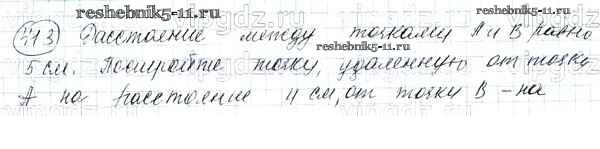 reshebnik5-11.ru
413 Расстояние между точками А и В равно
reshebnik5-11.ru
5 см. Постройте точку, удаленную от точки
А на расстояние 4 см, от точки В – на
reshebnik5-11.ru